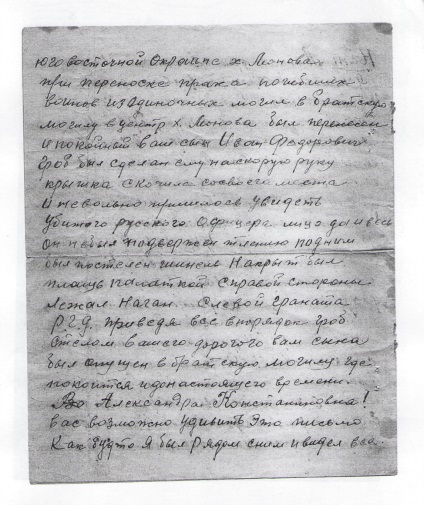 юго восточной Окраине х. Моновая
при переноске праха погибших
воинов из Одиночных могил в братскую
могилу в центр х. Монова был перенесен
и покойный ваш сын Иван Федорович
Гроб был сделан ему на скорую руку
крышка скочила со своего места
и невольно пришлось увидеть
Убитого русского Офицера лицо да и весь
он не был подвержен тлению под ним
был постелен шинель Накрыт был
плащь палаткой. справой стороны
лежал Наган. Слевой граната
Р.Г.Д. приведя все впорядок гроб
стелом вашего дорогого вам сына
был опущен в братскую могилу где
покоится и до настоящего времени.
Александра Константиновна!
вас возможно удивить Это письмо
Как будто Я был рядом сним и видел все.